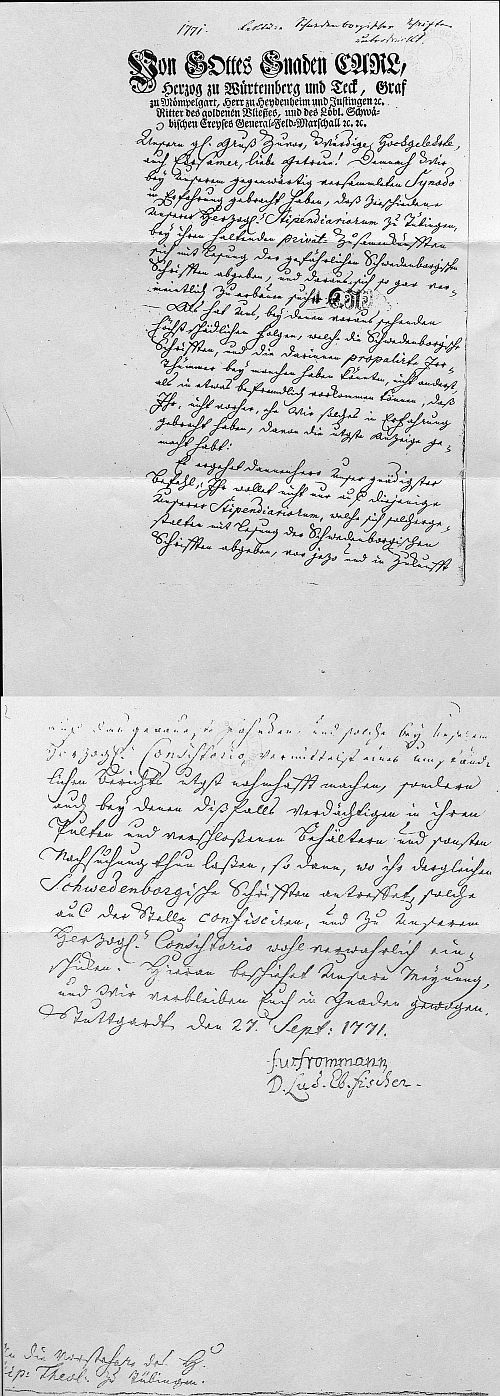 1771. Lectüre Schwedenborgischer Schriften
untersucht.
Von GOttes Gnaden CARL,
Herzog zu Würtemberg und Teck, Graf
zu Mömpelgart, Herr zu Heydenheim und Justingen ꝛc.
Ritter des goldenen Vliesses, und des Löbl. Schwä-
bischen Creyses General-Feld-Marschall ꝛc. ꝛc.
Unsern gn. Gruß zuvor, Würdige, Hochgelehrte,
auch Ehrsamer, liebe Getreue! Demnach Wir
bey Unserem gegenwärtig versammleten Synodo
in Erfahrung gebracht haben, daß verschiedene
Unserer Herzogl. Stipendiariorum zu Tübingen,
bey ihren haltenden privat-Zusamenkunfften
sich mit Lesung der gefährlichen Schwedenborgischen
Schrifften abgeben, und daraus sich so gar ver-
meintlich zu erbauen suchen.
Als hat Uns, bey denen voraus sehenden
höchst schädlichen Folgen, welche die Schwedenborgische
Schrifften, und die darinnen propalirte Irr-
thümmer bey manchen haben könnten, nicht anderst,
als in etwas befremdlich vorkommen können, daß
Ihr, nicht vorher, ehe Wir solches in Erfahrung
gebracht haben, davon die nöthige Anzeige ge-
macht habt:
Es ergehet dannenhero Unser gnädigster
Befehl, Ihr wollet nicht nur auf diejenige
Unserer Stipendiariorum, welche sich solcherge-
stalten mit Lesung der Schwedenborgischen
Schrifften abgeben, vor jezo und in Zukunfft
und solche bey Unserem
Herzogl. Consistorio, vermittelst eines umständ-
lichen Berichts nahmhafft machen, sondern
auch bey denen dißfalls verdächtigen in ihren
Pulten und verschloßenen Behältern und sonsten
Nachsuchung thun laßen, so dann, wo ihr dergleichen
Schwedenborgische Schrifften antreffet, solche
auf der Stelle confisciren, und zu Unserem
Herzogl. Consistorio wohl verwahrlich ein-
schicken. Hieran beschiehet Unsere Meynung,
und Wir verbleiben Euch in Gnaden gewogen.
Stuttgardt den 27. Sept: 1771.
f. v. Frommann
D. Lud. Eb. Fischer.
An die Vorstehere des H.
Stip: Theol. zu Tübingen.